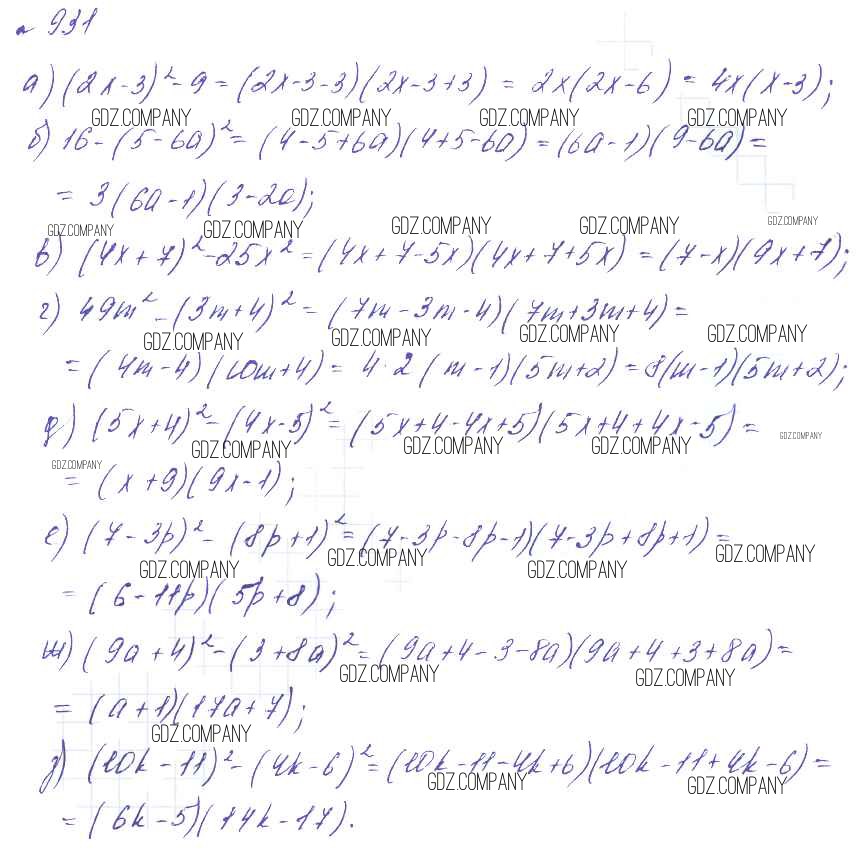 № 931
а) (2x-3)² - 9 = (2x-3-3)(2x-3+3) = 2x(2x-6) = 4x(x-3);
GDZ.COMPANY GDZ.COMPANY GDZ.COMPANY GDZ.COMPANY
б) 16 - (5-6a)² = (4-5+6a)(4+5-6a) = (6a-1)(9-6a) =
= 3(6a-1)(3-2a);
GDZ.COMPANY GDZ.COMPANY GDZ.COMPANY GDZ.COMPANY GDZ.COMPANY
в) (4x+7)² - 25x² = (4x+7-5x)(4x+7+5x) = (7-x)(9x+7);
г) 49m² - (3m+4)² = (7m-3m-4)(7m+3m+4) =
GDZ.COMPANY GDZ.COMPANY GDZ.COMPANY GDZ.COMPANY
= (4m-4)(10m+4) = 4·2(m-1)(5m+2) = 8(m-1)(5m+2);
д) (5x+4)² - (4x-5)² = (5x+4-4x+5)(5x+4+4x-5) =
GDZ.COMPANY GDZ.COMPANY GDZ.COMPANY GDZ.COMPANY
GDZ.COMPANY
= (x+9)(9x-1);
е) (7-3p)² - (8p+1)² = (7-3p-8p-1)(7-3p+8p+1) =
GDZ.COMPANY GDZ.COMPANY GDZ.COMPANY GDZ.COMPANY
= (6-11p)(5p+8);
ж) (9a+4)² - (3+8a)² = (9a+4-3-8a)(9a+4+3+8a) =
GDZ.COMPANY GDZ.COMPANY
= (a+1)(17a+7);
GDZ.COMPANY
з) (10k-11)² - (4k-6)² = (10k-11-4k+6)(10k-11+4k-6) =
GDZ.COMPANY GDZ.COMPANY
= (6k-5)(14k-17).